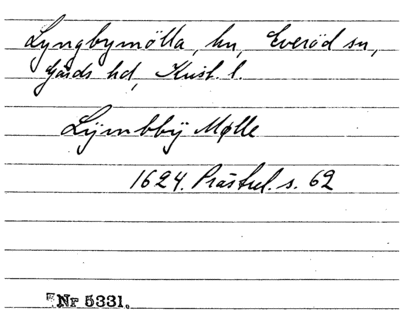 Lyngbymölla, hn, Everöd sn,
Gärds hd, Krist. l.
Lÿmbbÿ Mølle
1624. Prästrel. s. 62
Nr 5331.